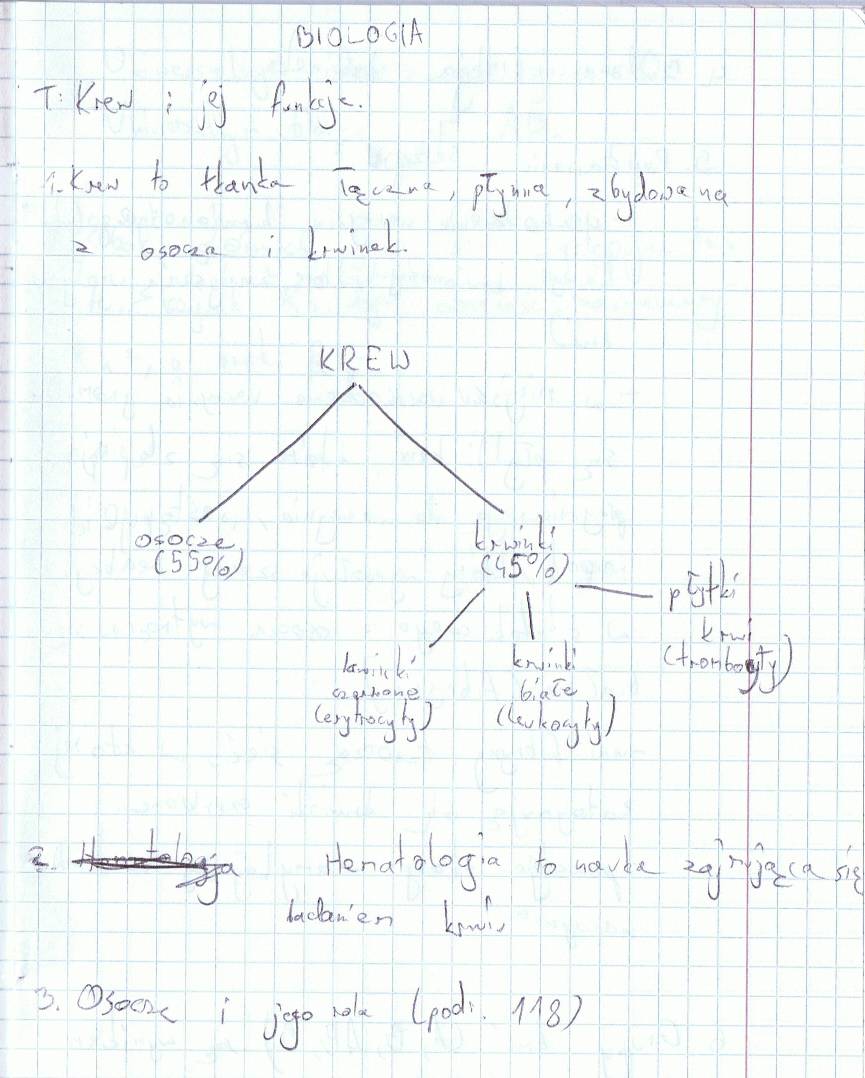 BIOLOGIA
T: Krew i jej funkcje.
1. Krew to tkanka łączna, płynna, zbydowana
z osocza i krwinek.
KREW
osocze
(55%)
krwinki
(45%)
płytki
krwi
(trombocyty)
krwinki
czerwone
(erytrocyty)
krwinki
białe
(leukocyty)
2. Hematologia Hematologia to nauka zajmująca się
badaniem krwi.
3. Osocze i jego rola (podr. 118)